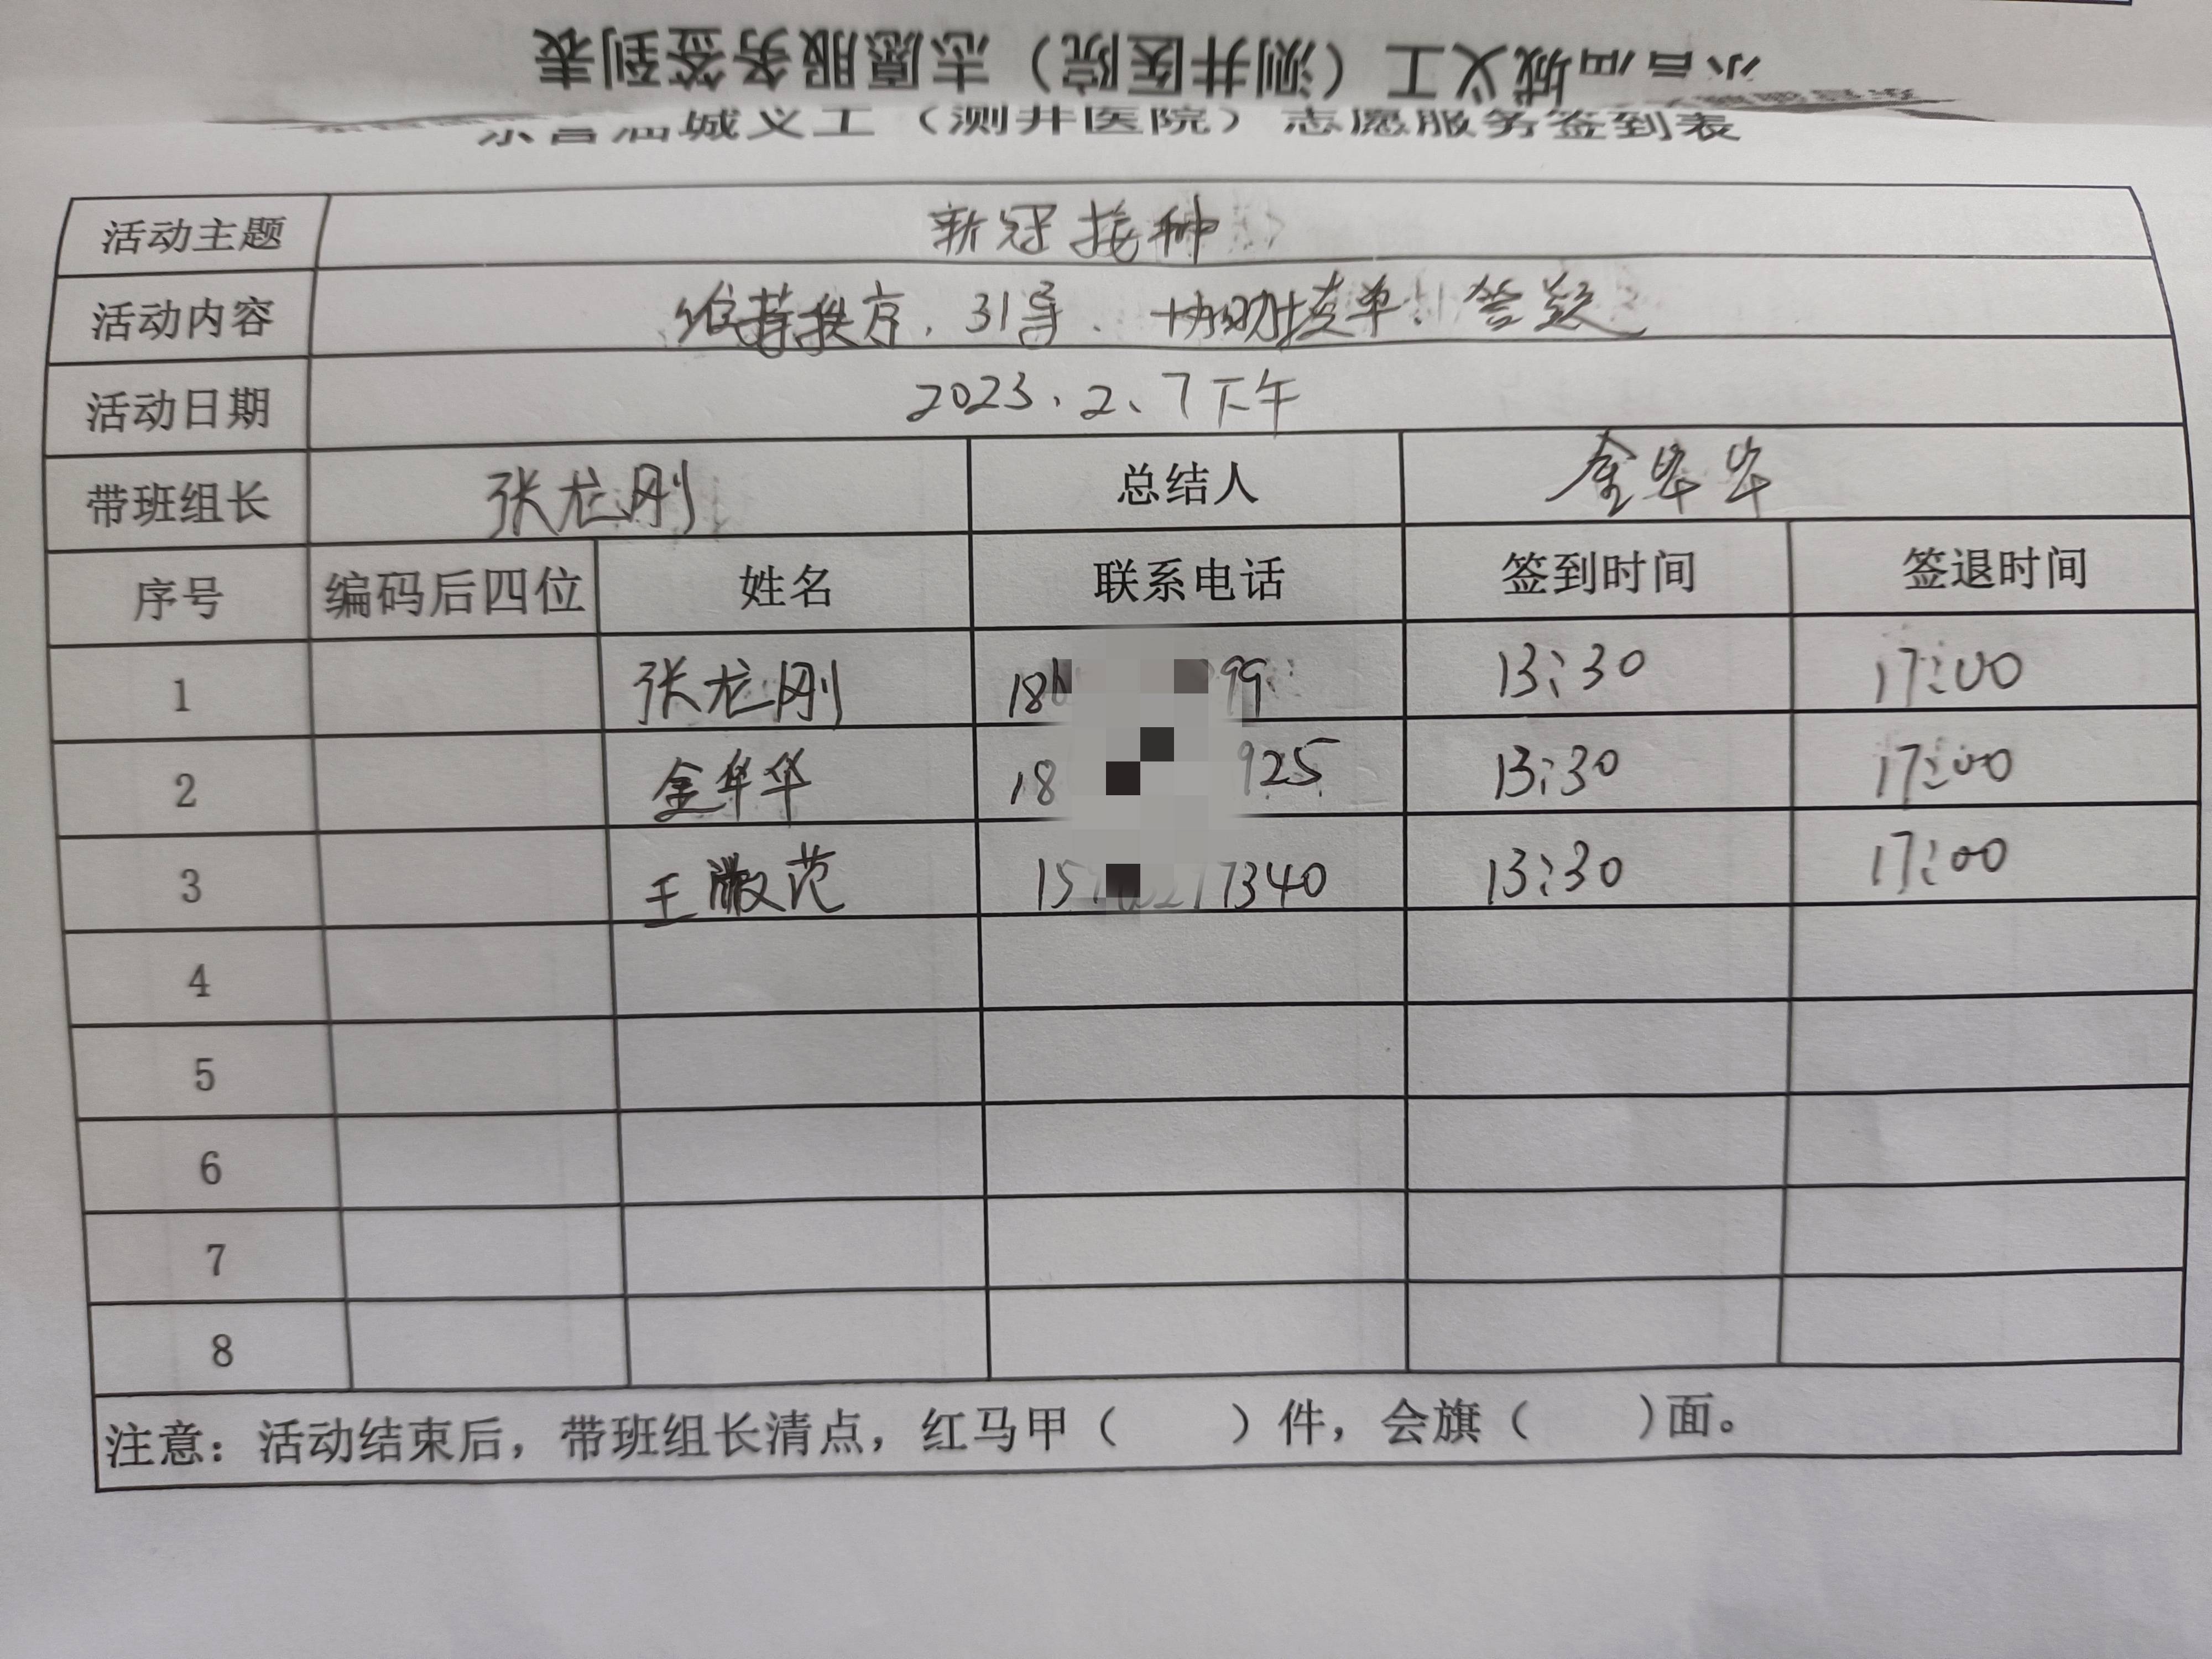 城义工（测井医院）志愿服务签到表
城义工（测井医院）志愿服务签到表
活动主题 新冠接种
活动内容 维持秩序、引导、协助填单、答疑
活动日期 2023、2、7下午
带班组长 张龙刚 总结人 金华华
序号 编码后四位 姓名 联系电话 签到时间 签退时间
1 张龙刚 18 99 13:30 17:00
2 金华华 18 925 13:30 17:00
3 王 范 15 7340 13:30 17:00
4
5
6
7
8
注意：活动结束后，带班组长清点，红马甲（ ）件，会旗（ ）面。